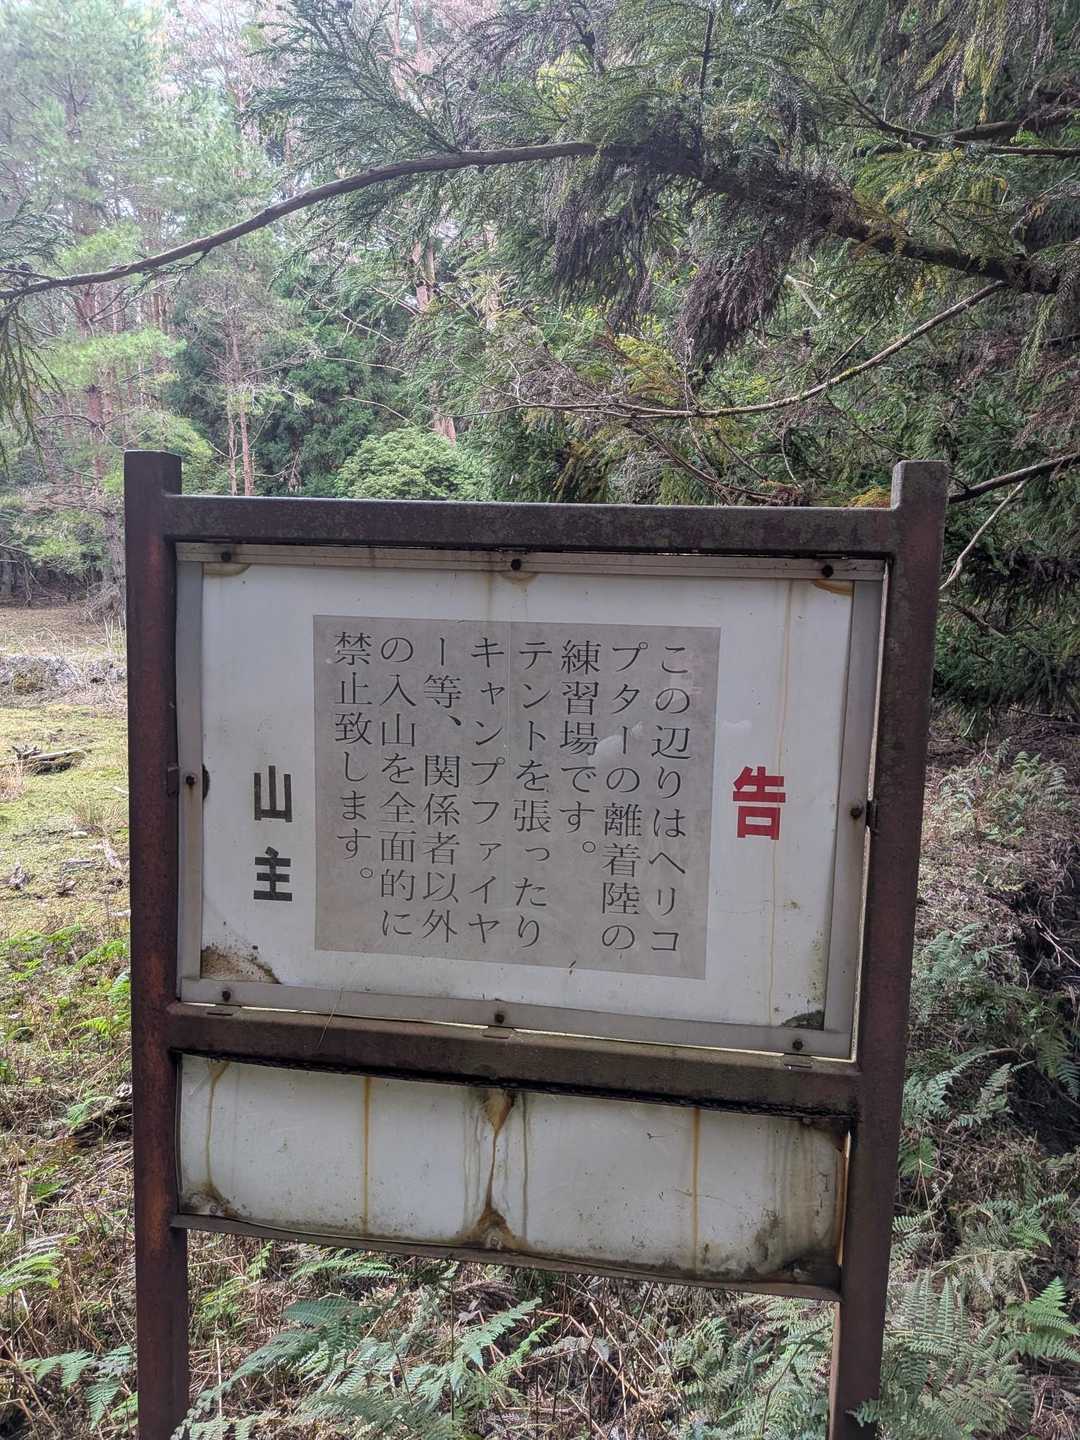 告
この辺りはヘリコ
プターの離着陸の
練習場です。
テントを張ったり
キャンプファイヤ
ー等、関係者以外
の入山を全面的に
禁止致します。
山主